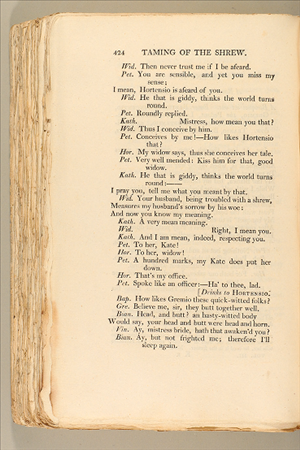 424 TAMING OF THE SHREW.
Wid. Then never trust me if I be afeard.
Pet. You are sensible, and yet you miss my
sense;
I mean, Hortensio is afeard of you.
Wid. He that is giddy, thinks the world turns
round.
Pet. Roundly replied.
Kath. Mistress, how mean you that?
Wid. Thus I conceive by him.
Pet. Conceives by me!—How likes Hortensio
that?
Hor. My widow says, thus she conceives her tale.
Pet. Very well mended: Kiss him for that, good
widow.
Kath. He that is giddy, thinks the world turns
round:——
I pray you, tell me what you meant by that.
Wid. Your husband, being troubled with a shrew,
Measures my husband's sorrow by his woe:
And now you know my meaning.
Kath. A very mean meaning.
Wid. Right, I mean you.
Kath. And I am mean, indeed, respecting you.
Pet. To her, Kate!
Hor. To her, widow!
Pet. A hundred marks, my Kate does put her
down.
Hor. That's my office.
Pet. Spoke like an officer:—Ha' to thee, lad.
[Drinks to HORTENSIO.
Bap. How likes Gremio these quick-witted folks?
Gre. Believe me, sir, they butt together well.
Bian. Head, and butt? an hasty-witted body
Would say, your head and butt were head and horn.
Vin. Ay, mistress bride, hath that awaken'd you?
Bian. Ay, but not frighted me; therefore I'll
sleep again.